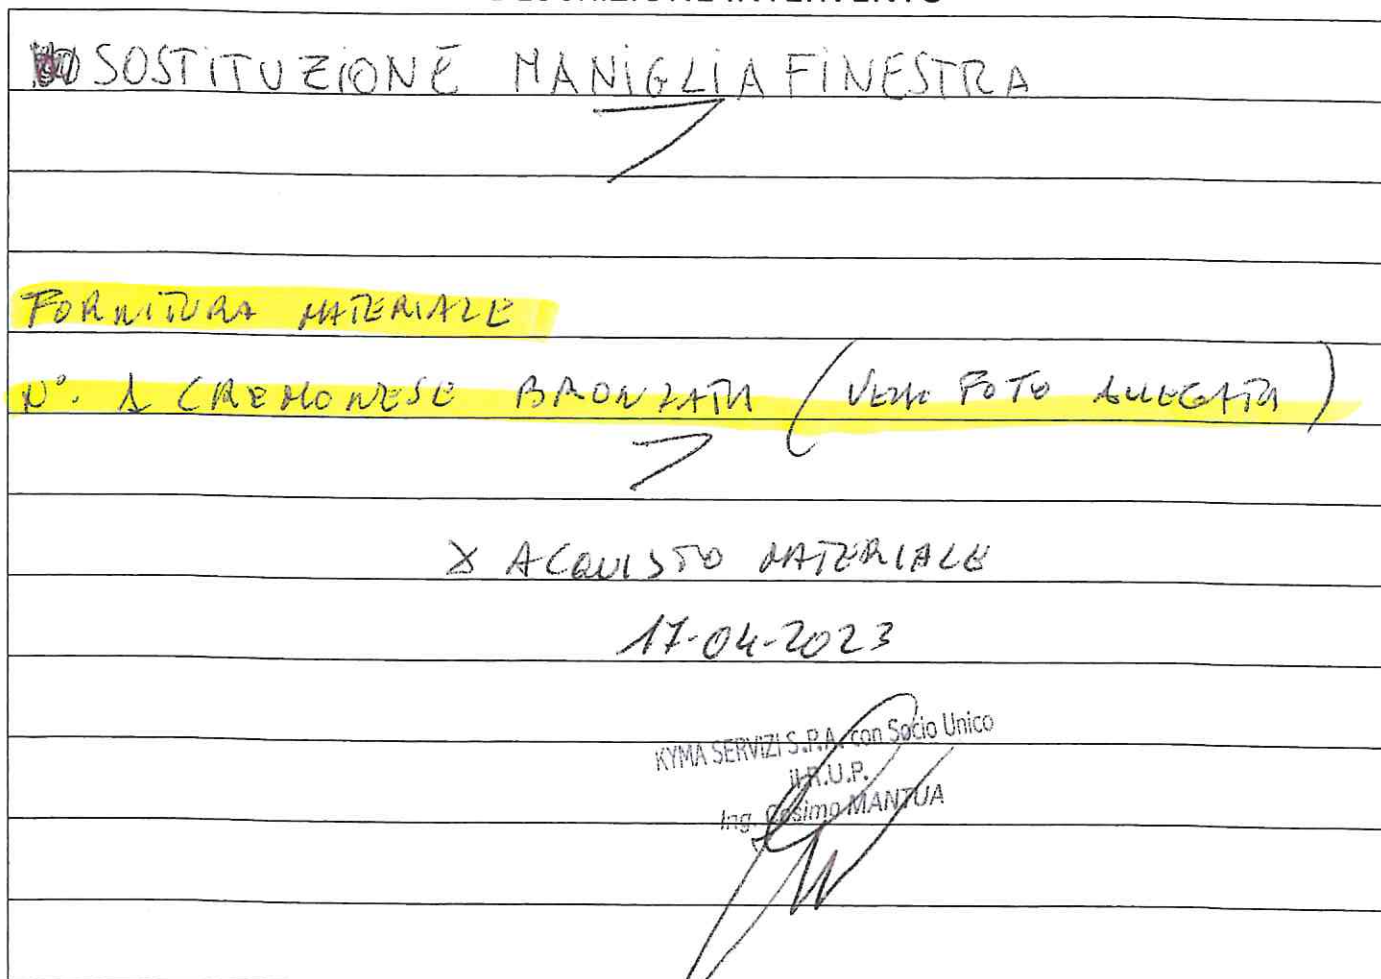 DESCRIZIONE INTERVENTO
SOSTITUZIONE MANIGLIA FINESTRA
FORNITURA MATERIALE
N°. 1 CREMONESE BRONZATA (VEDI FOTO ALLEGATA)
X ACQUISTO MATERIALE
17-04-2023
KYMA SERVIZI S.P.A. con Socio Unico
il R.U.P.
Ing. Cosimo MANTUA